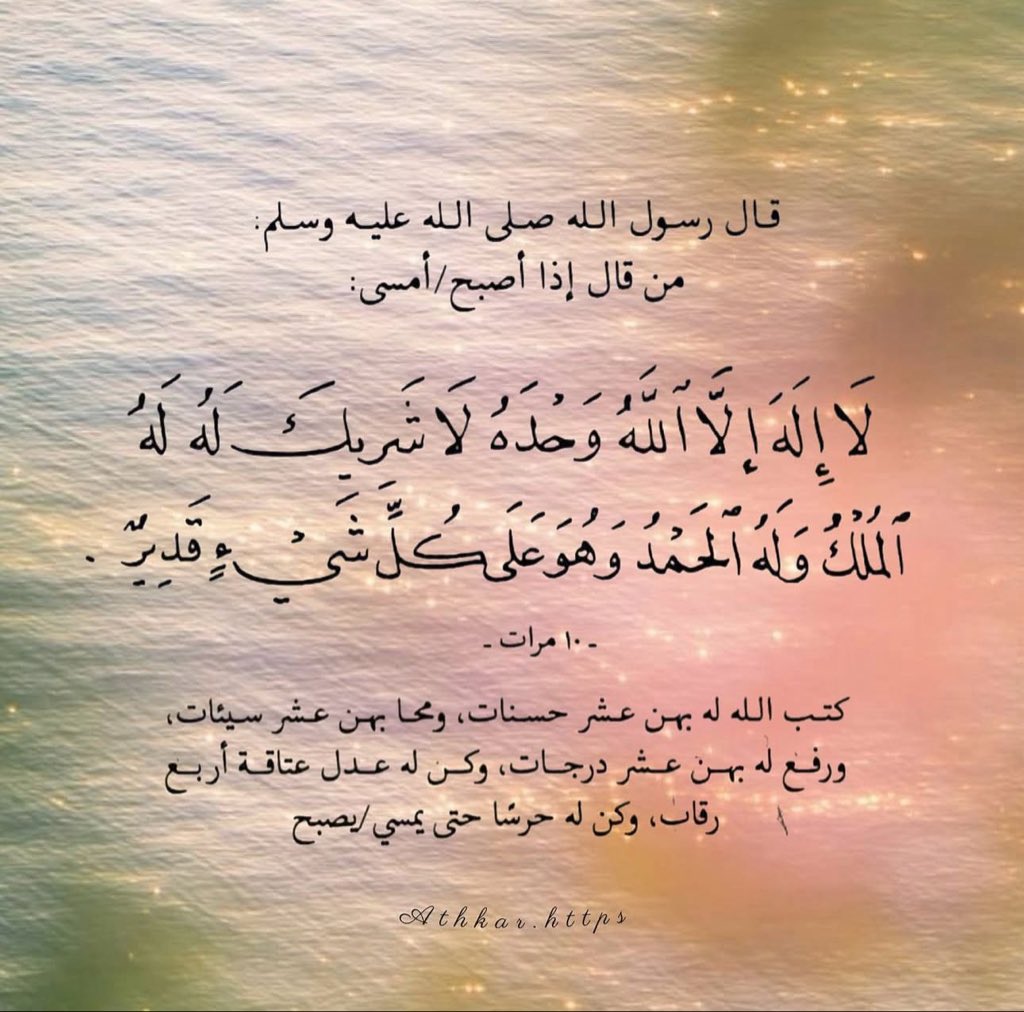 قال رسول الله صلى الله عليه وسلم:
من قال إذا أصبح/أمسى:
لَا إِلَهَ إِلَّا ٱللَّهُ وَحْدَهُ لَا شَرِيكَ لَهُ لَهُ
ٱلْمُلْكُ وَلَهُ ٱلْحَمْدُ وَهُوَ عَلَى كُلِّ شَيْءٍ قَدِيرٌ .
- ١٠ مرات -
كتب الله له بهن عشر حسنات، ومحا بهن عشر سيئات،
ورفع له بهن عشر درجات، وكن له عدل عتاقة أربع
رقاب، وكن له حرسًا حتى يمسي/يصبح
Athkar.https